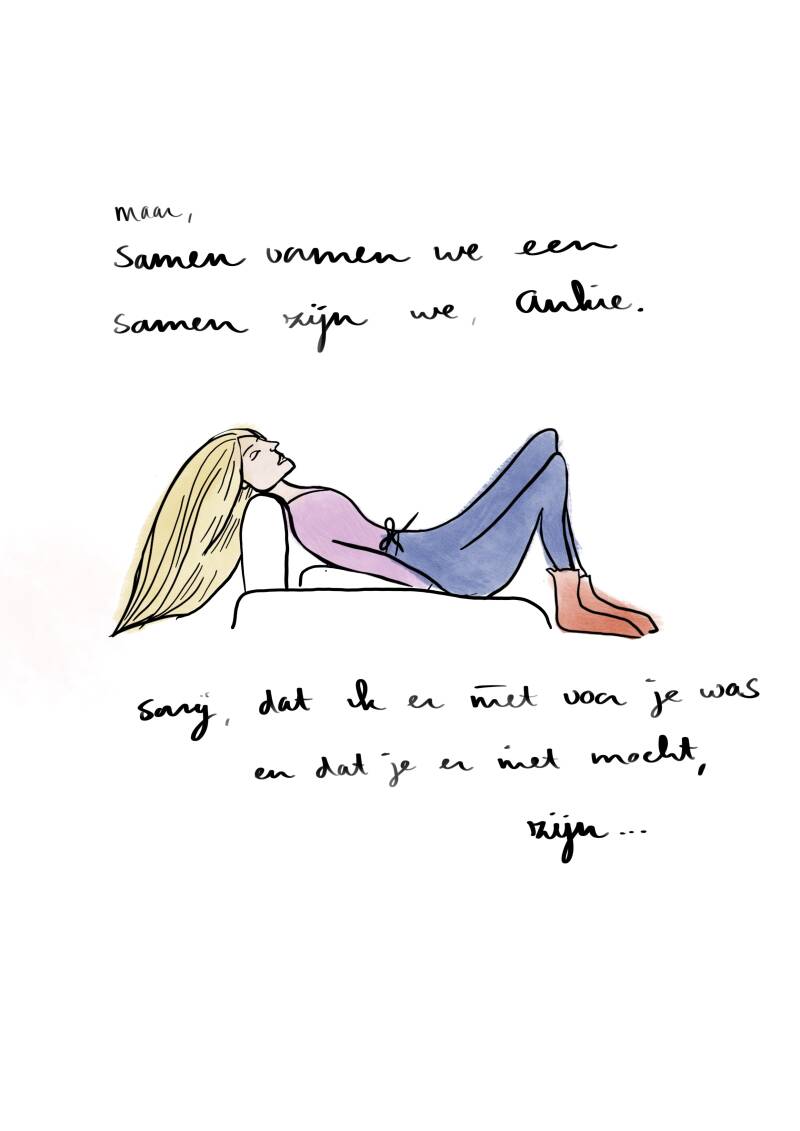 maar,
samen vormen we een
samen zijn we, Ankie.
sorry, dat ik er niet voor je was
en dat je er niet mocht,
zijn...